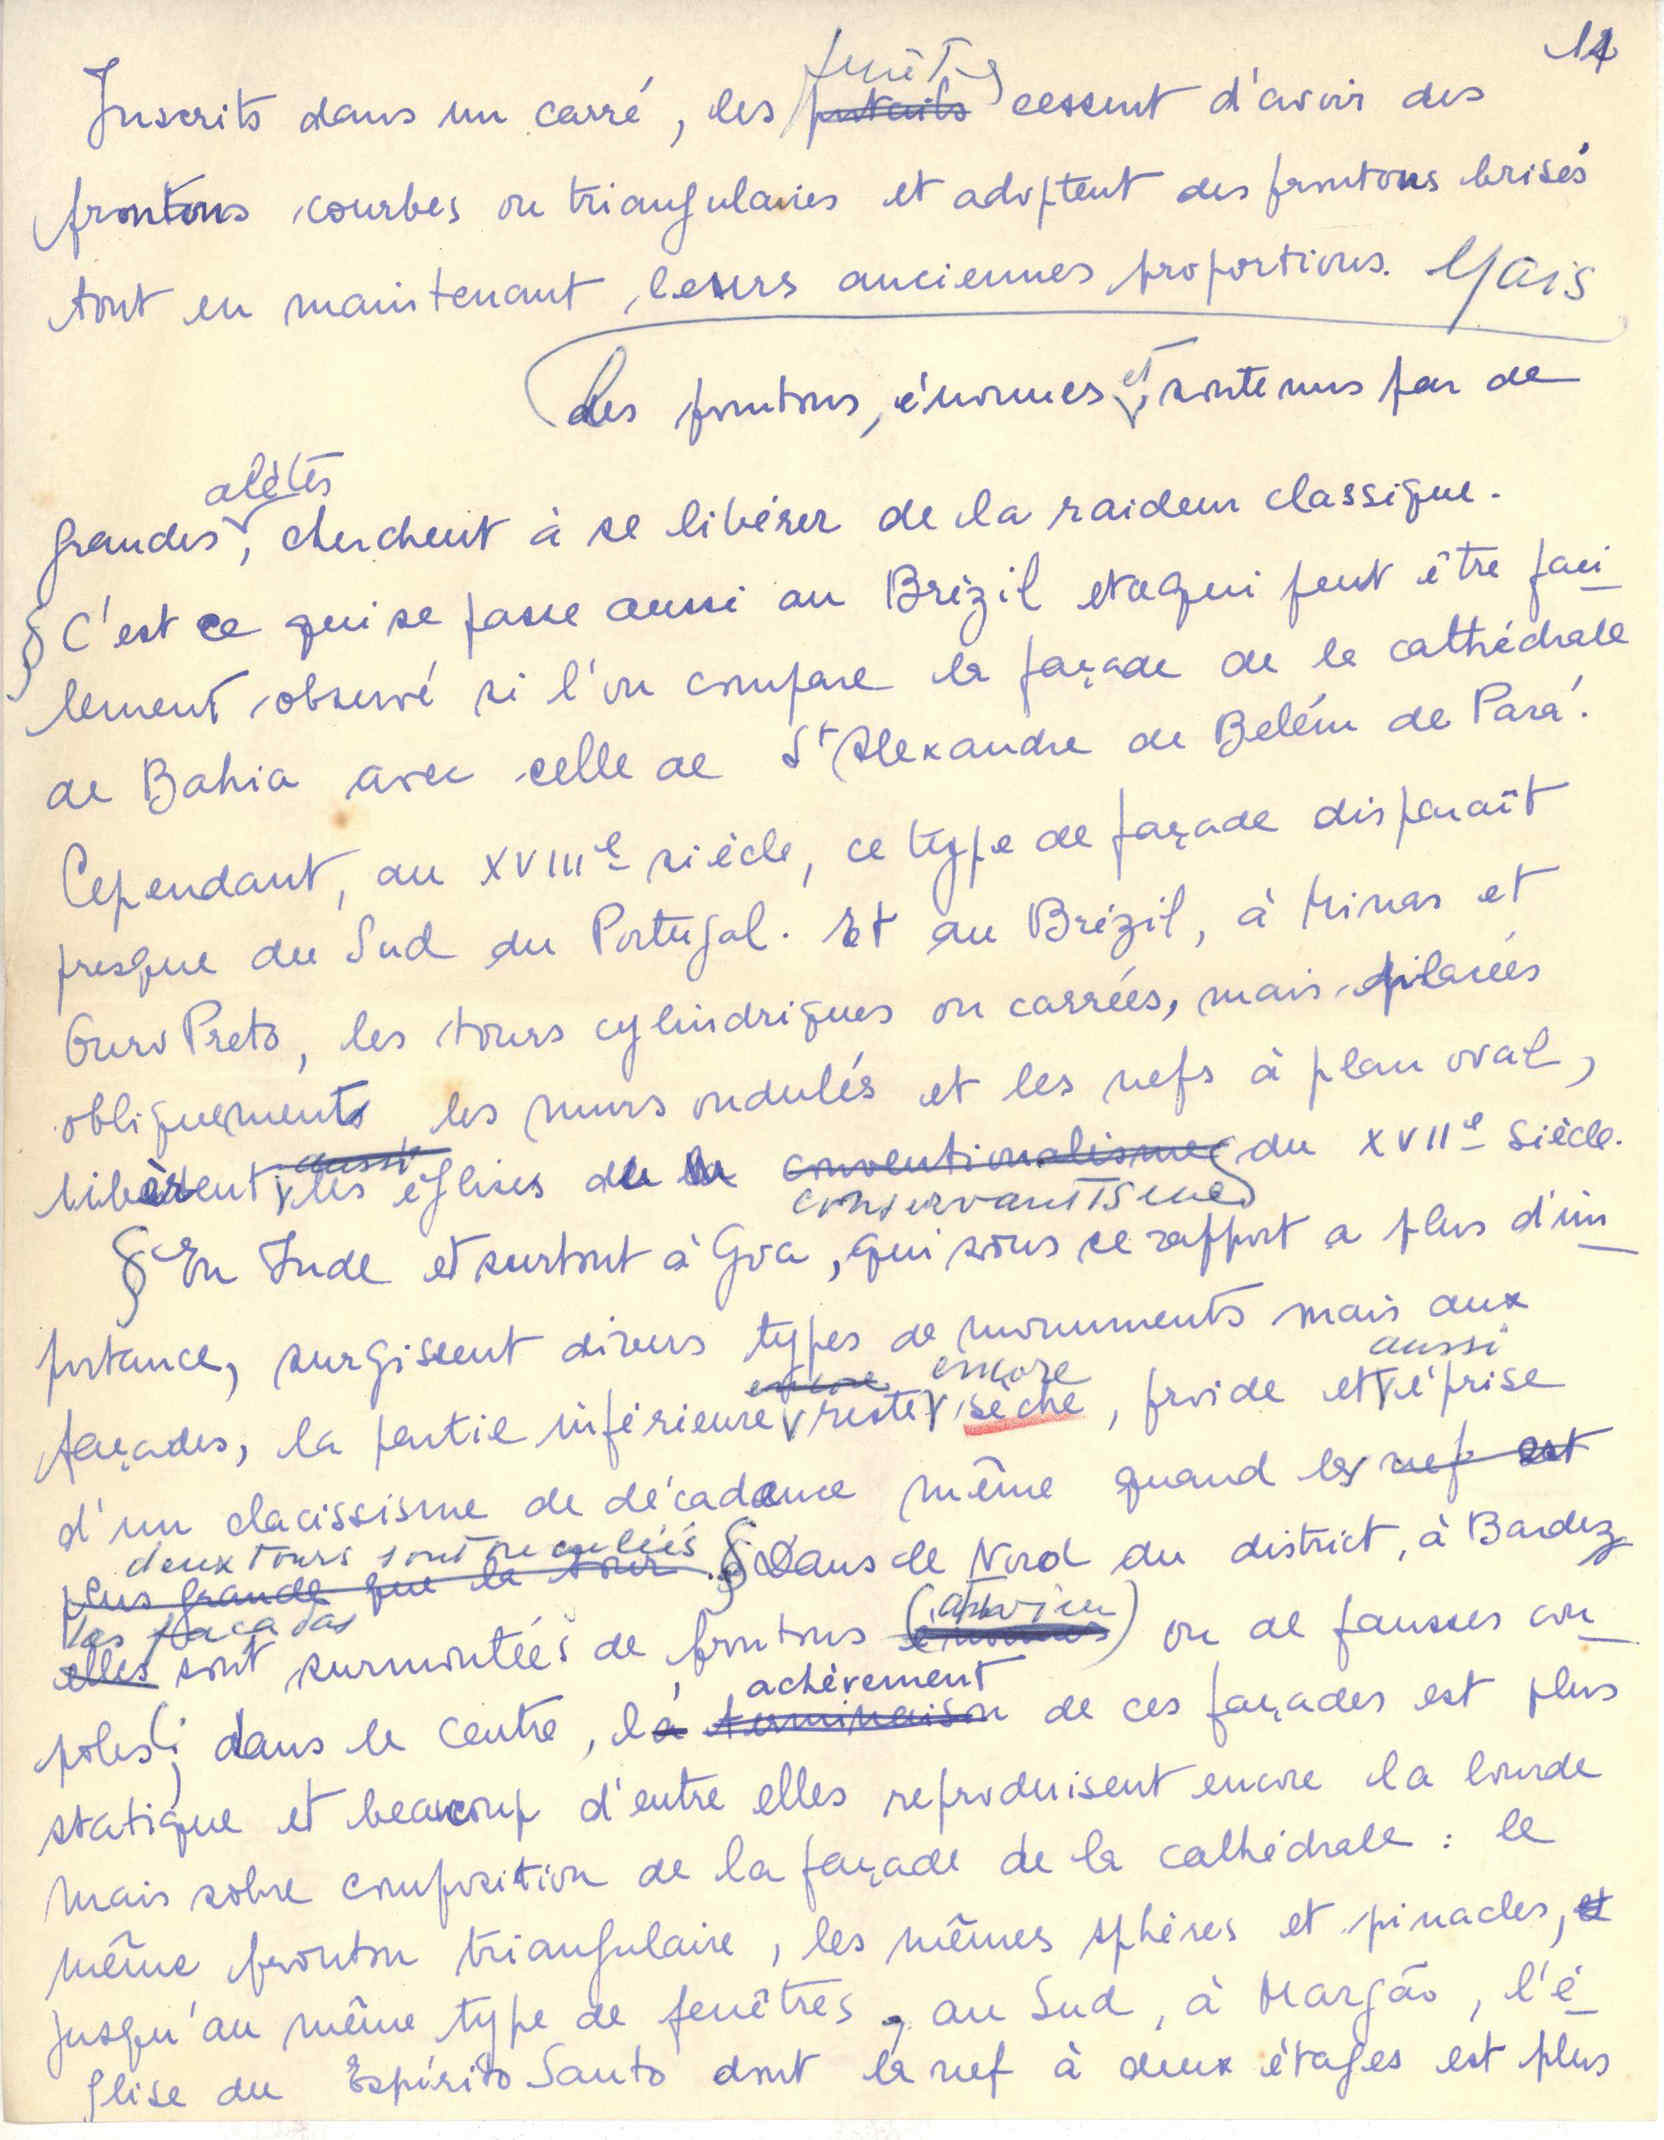 14
fenêtres
Inscrits dans un carré, les portails cessent d'avoir des
frontons courbes ou triangulaires et adoptent des frontons brisés
tout en maintenant leurs anciennes proportions. Mais
les frontons, énormes et soutenus par de
alètes
grandes, cherchent à se libérer de la raideur classique.
§ C'est ce qui se passe aussi au Brézil et ce qui peut être faci-
lement observé si l'on compare la façade de la cathédrale
de Bahia avec celle de St Alexandre de Belém de Pará.
Cependant, au XVIIIe siècle, ce type de façade disparaît
presque du Sud du Portugal. Et au Brézil, à Minas et
Ouro Preto, les tours cylindriques ou carrées, mais pilarées
obliquement, les murs ondulés et les nefs à plan oval,
aussi
libèrent les églises du conventionalisme du XVIIe siècle.
conservantisme
§ En Inde et surtout à Goa, qui sous ce rapport a plus d'im-
portance, surgissent divers types de monuments mais aux
encore encore aussi
façades, la partie inférieure reste sèche, froide et éprise
d'un clacissisme de décadence même quand les nef est
deux tours sont reculées
plus grande que la tour. § Dans le Nord du district, à Bardez
les façadas
elles sont surmontées de frontons (énormes) ou de fausses cou-
achèvement
poles; dans le centre, la terminaison de ces façades est plus
statique et beaucoup d'entre elles reproduisent encore la lourde
mais sobre composition de la façade de la cathédrale : le
même fronton triangulaire, les mêmes sphères et pinacles, et
jusqu'au même type de fenêtres, au Sud, à Margão, l'é-
glise du Espírito Santo dont la nef à deux étages est plus